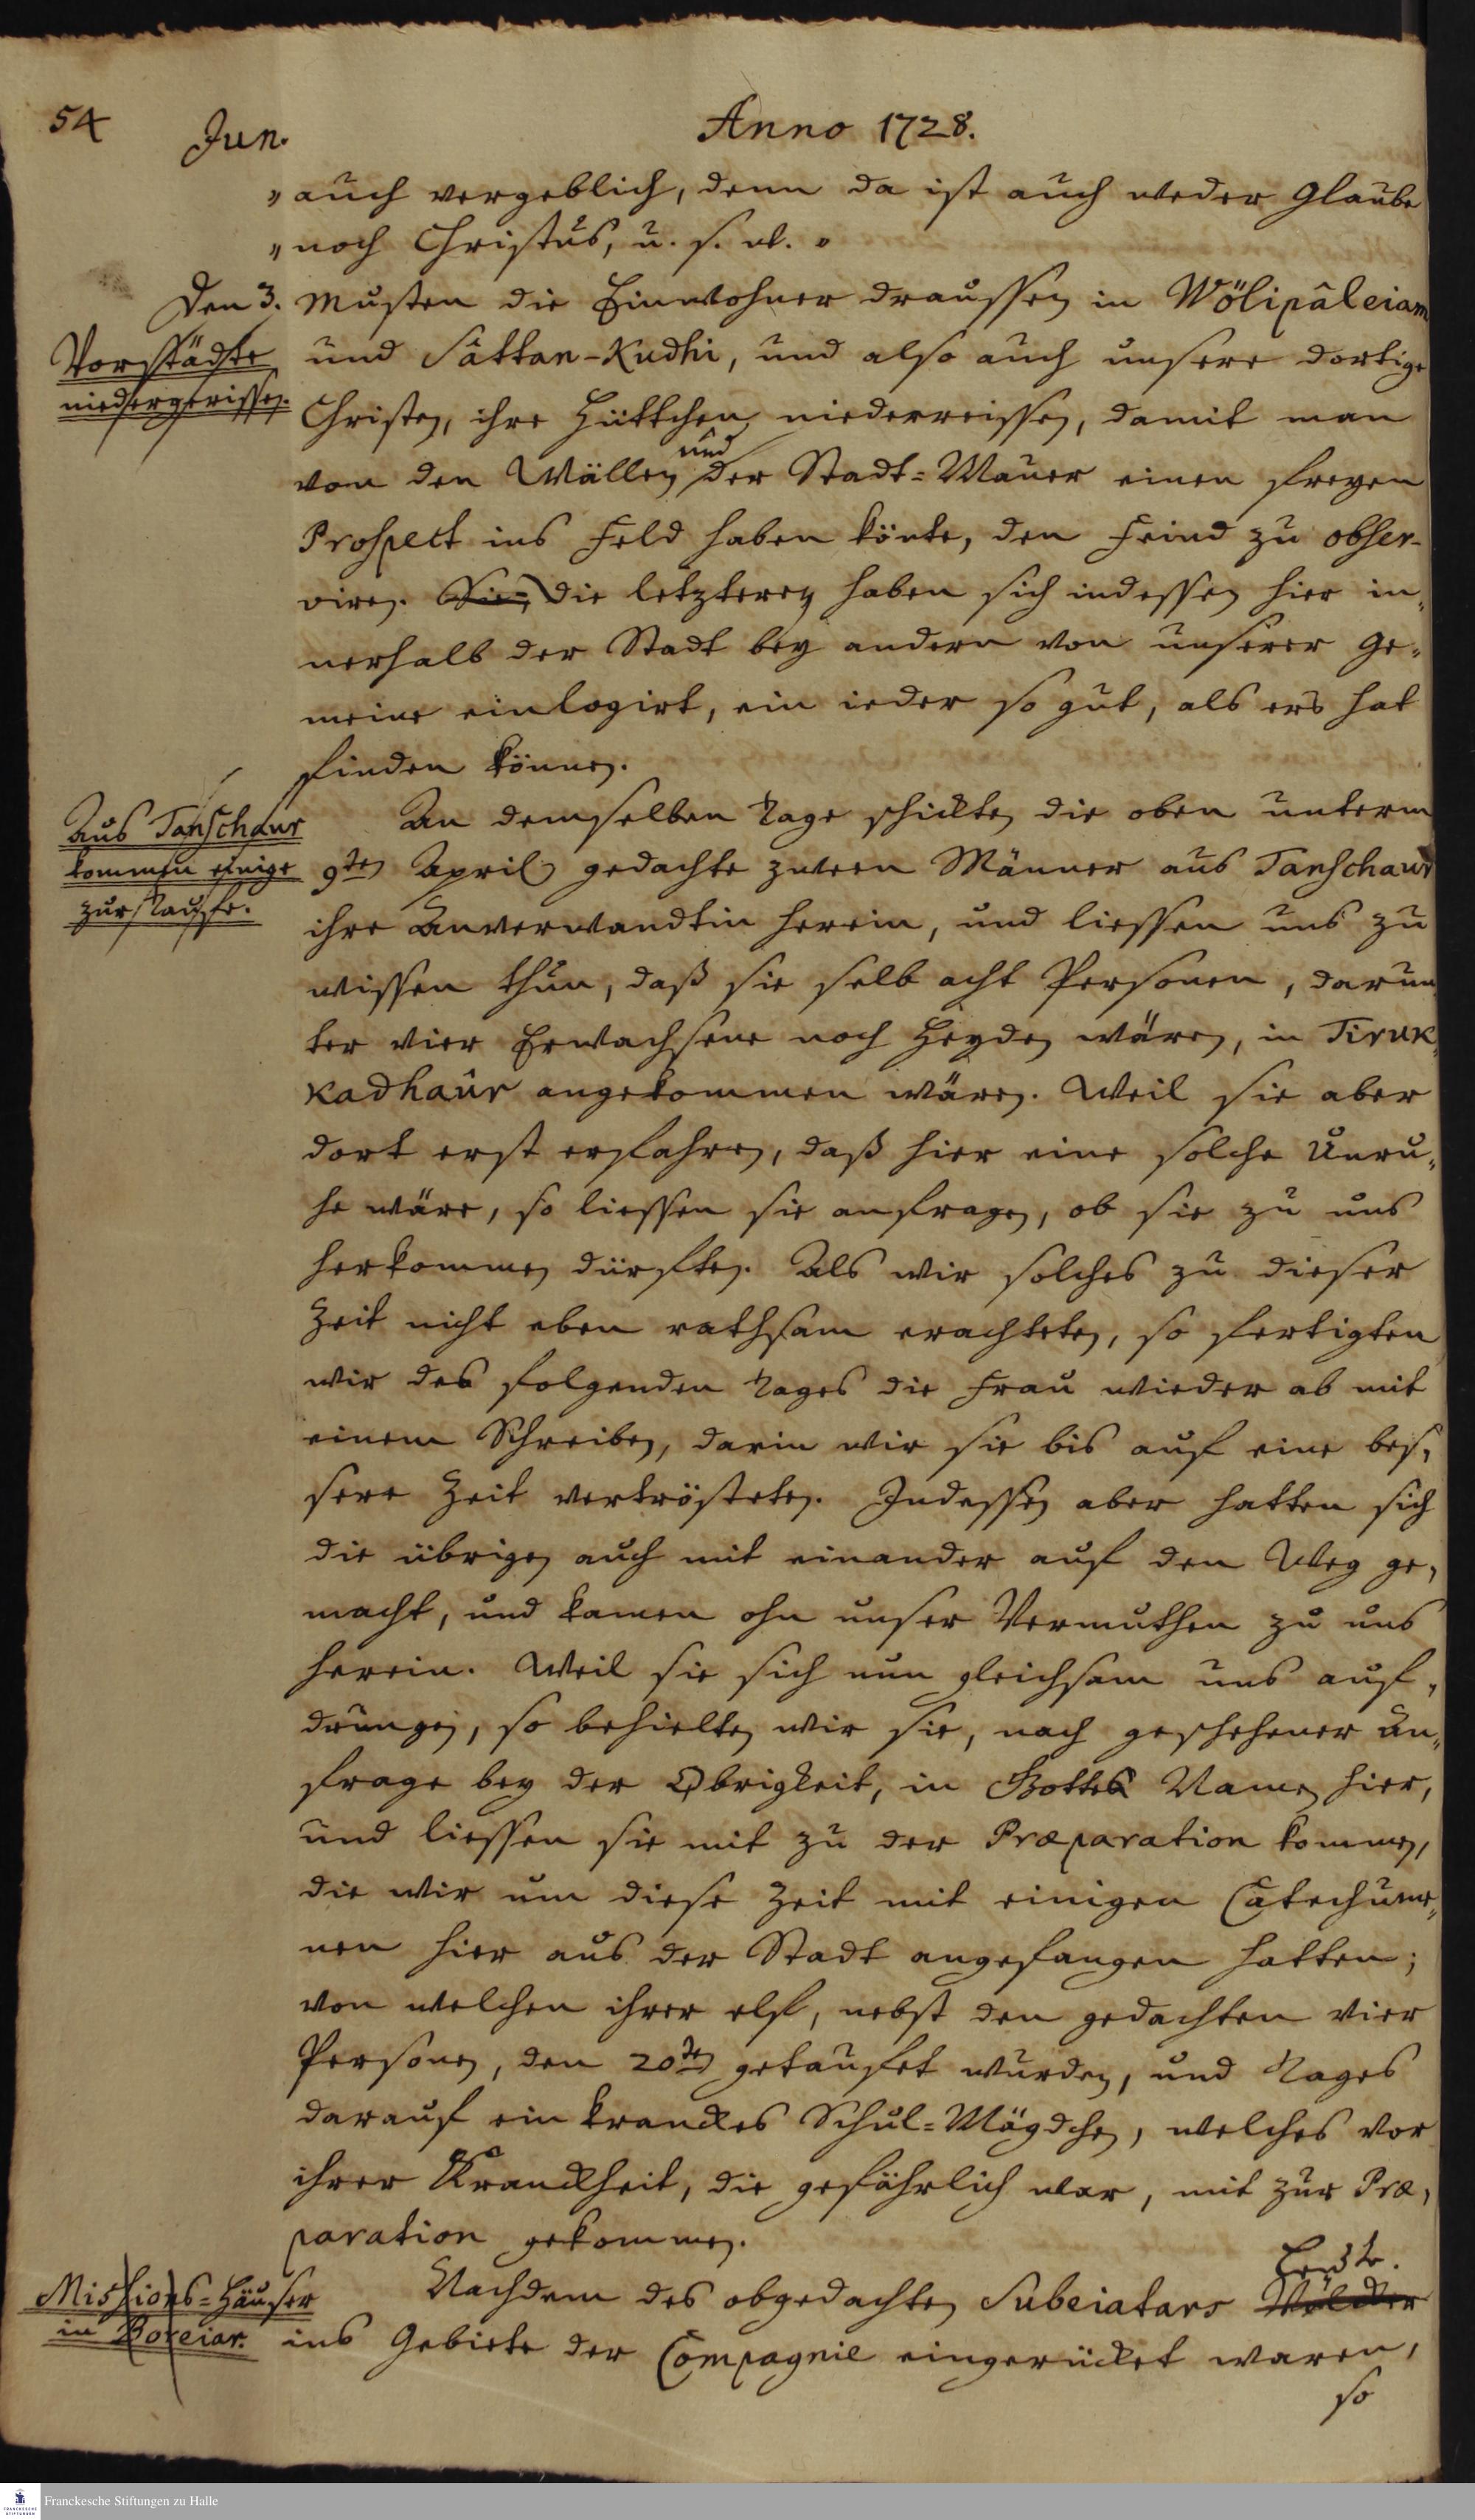 54
Jun.
Anno 1728.
„auch vergeblich, denn da ist auch weder Glaube
„noch Christus, u. s. w. "
Den 3. musten die Einwohner draussen in Wölipâleiam
Vorstädte
niedergerissen.
und Sâttan-Kudhi, und also auch unsere dortige
Christen, ihre Hüttchen niederreissen, damit man
von den Wällen und der Stadt=Mauer einen freyen
Prospect ins Feld haben könte, den Feind zu obser-
viren. Sie, die letzteren haben sich indessen hier in„
nerhalb der Stadt bey andern von unserer Ge„
meine einlogirt, ein ieder so gut, als ers hat
finden können.
Aus Tanschaur
kommen einige
zur Tauffe.
An demselben Tage schickten die oben unterm
9ten April gedachte zween Männer aus Tanschaur
ihre Anverwandtin herein, und liessen uns zu
wissen thun, daß sie selb acht Personen, darun„
ter vier Erwachsene noch Heyden wären, in Tiruk„
kadhaûr angekommen wären. Weil sie aber
dort erst erfahren, daß hier eine solche Unru„
he wäre, so liessen sie anfragen, ob sie zu uns
herkommen dürften. Als wir solches zu dieser
Zeit nicht eben rathsam erachteten, so fertigten
wir des folgenden Tages die Frau wieder ab mit
einem Schreiben, darin wir sie bis auf eine bes„
sere Zeit vertrösteten. Indessen aber hatten sich
die übrigen auch mit einander auf den Weg ge„
macht, und kamen ohn unser Vermuthen zu uns
herein. Weil sie sich nun gleichsam uns auf„
drungen, so behielten wir sie, nach geschehener An„
frage bey der Obrigkeit, in Gottes Namen hier,
und liessen sie mit zu der Præparation kommen,
die wir um diese Zeit mit einigen Catechume„
nen hier aus der Stadt angefangen hatten;
von welchen ihrer elf, nebst den gedachten vier
Personen, den 20ten getauffet wurden, und Tages
darauf ein kranckes Schul=Mägdchen, welches vor
ihrer Kranckheit, die gefährlich war, mit zur Præ„
paration gekommen.
Missions=Häuser
in Boreiar.
Nachdem des obgedachten Subeiatars
ins Gebiete der Compagnie eingerücket waren,
so
Franckesche Stiftungen zu Halle